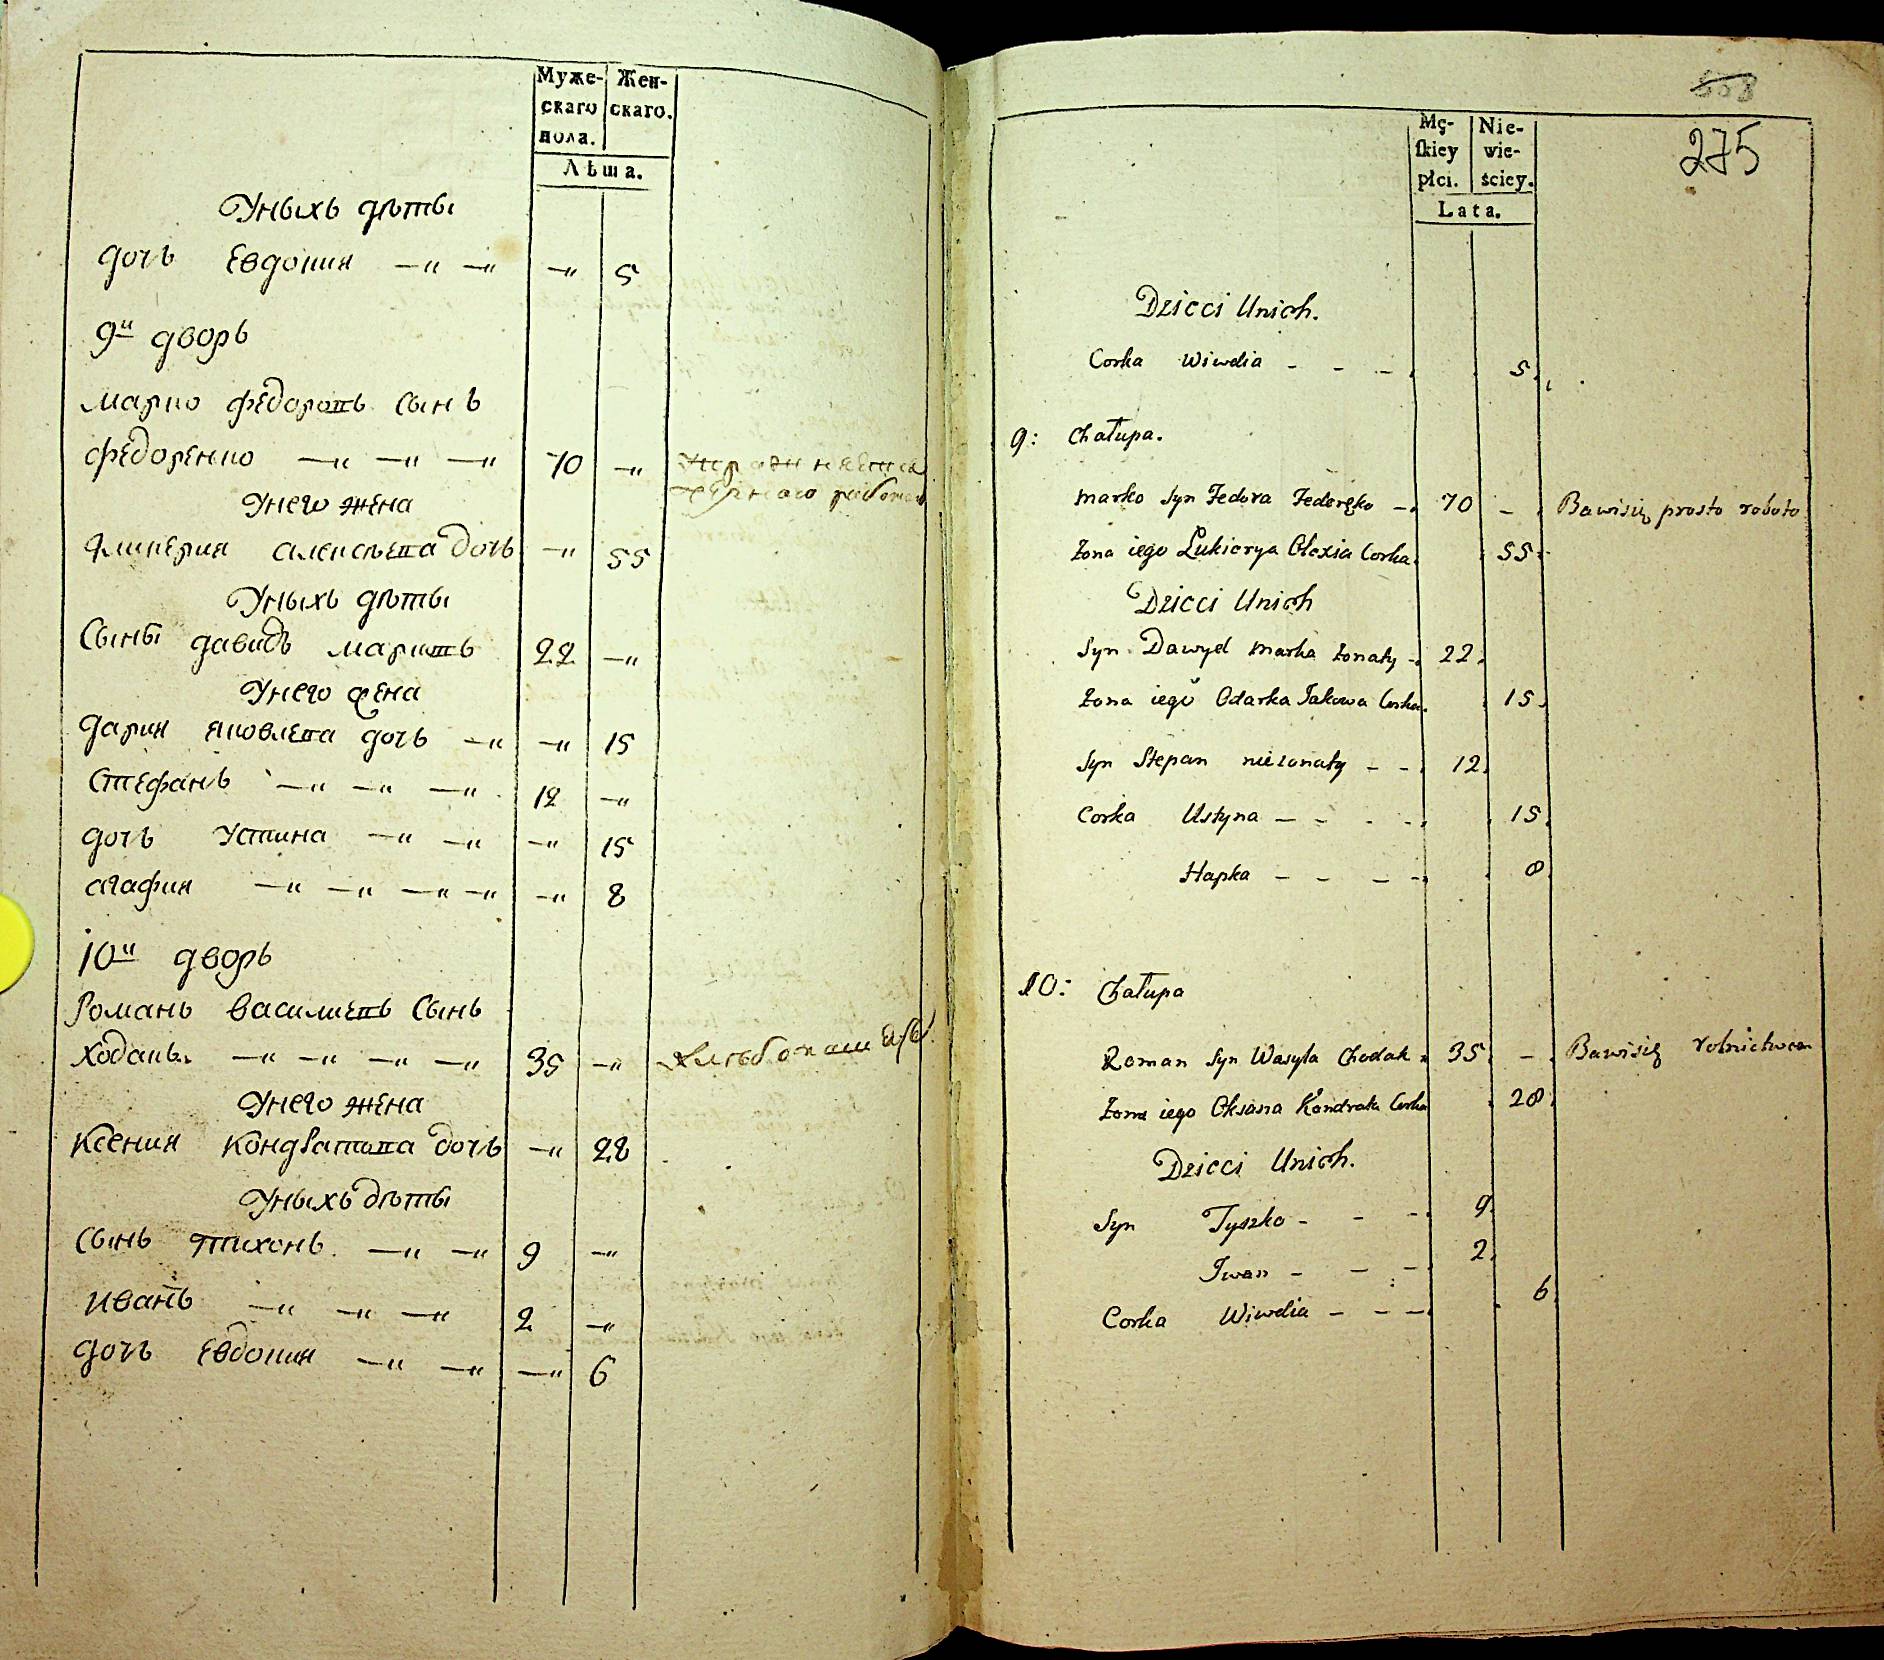 Муже- Жен-
скаго скаго.
пола.
Лѣта.
Уныхъ дѣти
дочь Евдокия —„ —„ —„ 5
9й дворъ
Марко Федоровъ сынъ
Федоренко —„ —„ —„ 70 —„ Упражняется
чернаго работою
Унего жена
Гликерия Алексѣева дочь —„ 55
Уныхъ дѣти
Сыны Давидъ Марковъ 22 —„
Унего жена
Дария Яковлева дочь —„ —„ 15
Стефанъ —„ —„ —„ 12 —„
дочь Устина —„ —„ —„ 15
Агафия —„ —„ —„ —„ —„ 8
10й дворъ
Романъ Василиевъ Сынъ
Ходакъ —„ —„ —„ —„ 35 —„ Хлебопашец
Унего жена
Ксения Кондратова дочь —„ 28
Уныхъ дѣти
Сынъ Тихонъ —„ —„ 9 —„
Иванъ —„ —„ —„ 2 —„
дочь Евдокия —„ —„ —„ 6
558
275
Mę- Nie-
ſkiey wie-
płci. ściey.
Lata.
Dzieci Unich.
Corka Wiwdia - - - 5.
9: Chałupa.
Marko Syn Fedora Federęko - 70 - Bawisię prosto roboto
Zona iego Lukierya Olexia Corka. 55.
Dzieci Unich
Syn Dawyd Marka Zonaty - 22.
Zona iego Odarka Jakowa Corka. 15.
Syn Stepan niezonaty - - 12.
Corka Ustyna - - - - 15.
Hapka - - - - 8
10: Chałupa
Roman Syn Wasyla Chodak 35. - Bawisię rolnictwem
Zona iego Oksana Kondrata Corka 28.
Dzieci Unich.
Syn Tyszko - - - 9.
Iwan - - - 2.
Corka Wiwdia - - - 6.